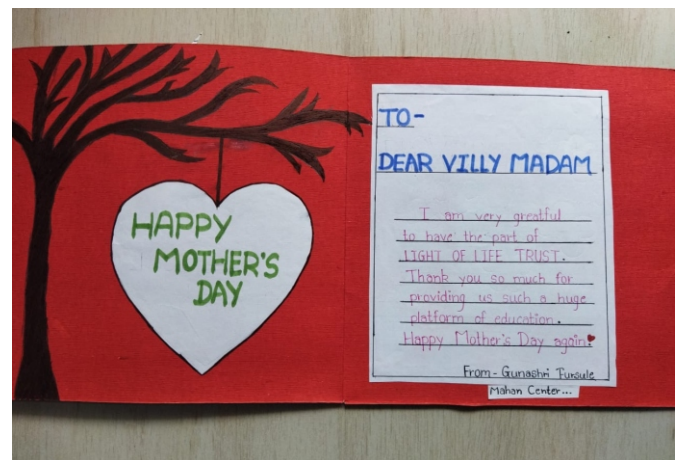 HAPPY
MOTHER'S
DAY
TO-
DEAR VILLY MADAM
I am very greatful
to have the part of
LIGHT OF LIFE TRUST.
Thank you so much for
providing us such a huge
platform of education.
Happy Mother's Day again!
From - Gunashri Tursule
Mohan Center...